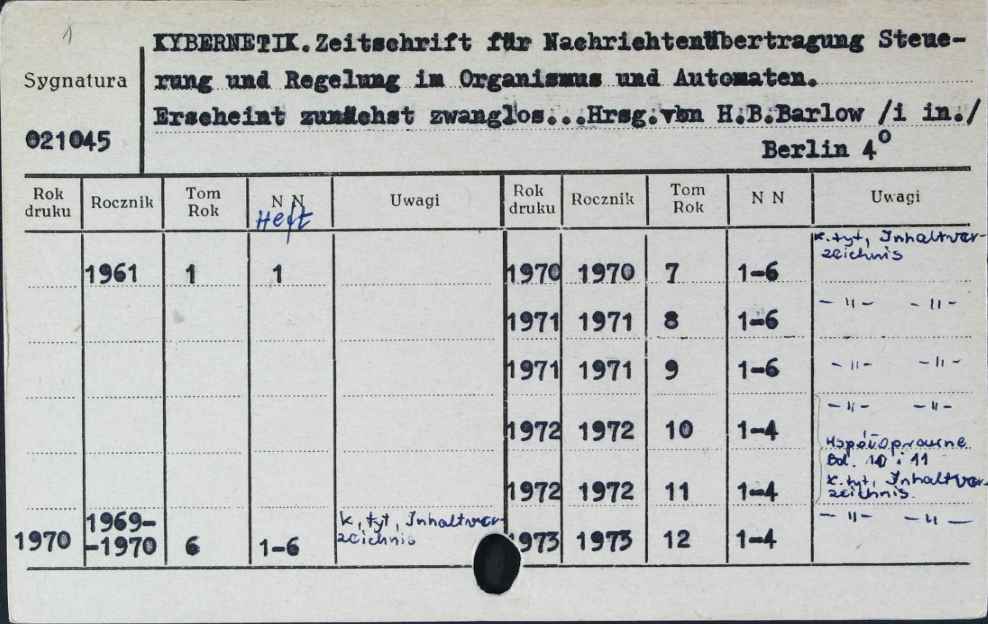 1
KYBERNETIK. Zeitschrift für Nachrichtenübertragung Steue-
Sygnatura
rung und Regelung im Organismus und Automaten.
Erscheint zunächst zwanglos...Hrsg.von H.B.Barlow /i in./
021045
Berlin 4°
Rok druku Rocznik Tom Rok N N Heft Uwagi Rok druku Rocznik Tom Rok N N Uwagi
1961 1 1
1970 1970 7 1-6 k. tyt, Inhaltver-
zeichnis
1971 1971 8 1-6 - " - - " -
1971 1971 9 1-6 - " - - " -
1972 1972 10 1-4 - " - - " -
Współoprawne
Bd. 10 i 11
1972 1972 11 1-4 k. tyt, Inhaltver-
zeichnis.
1969-
1970 -1970 6 1-6 k, tyt, Inhaltver-
zeichnis
1973 1973 12 1-4 - " - - " -